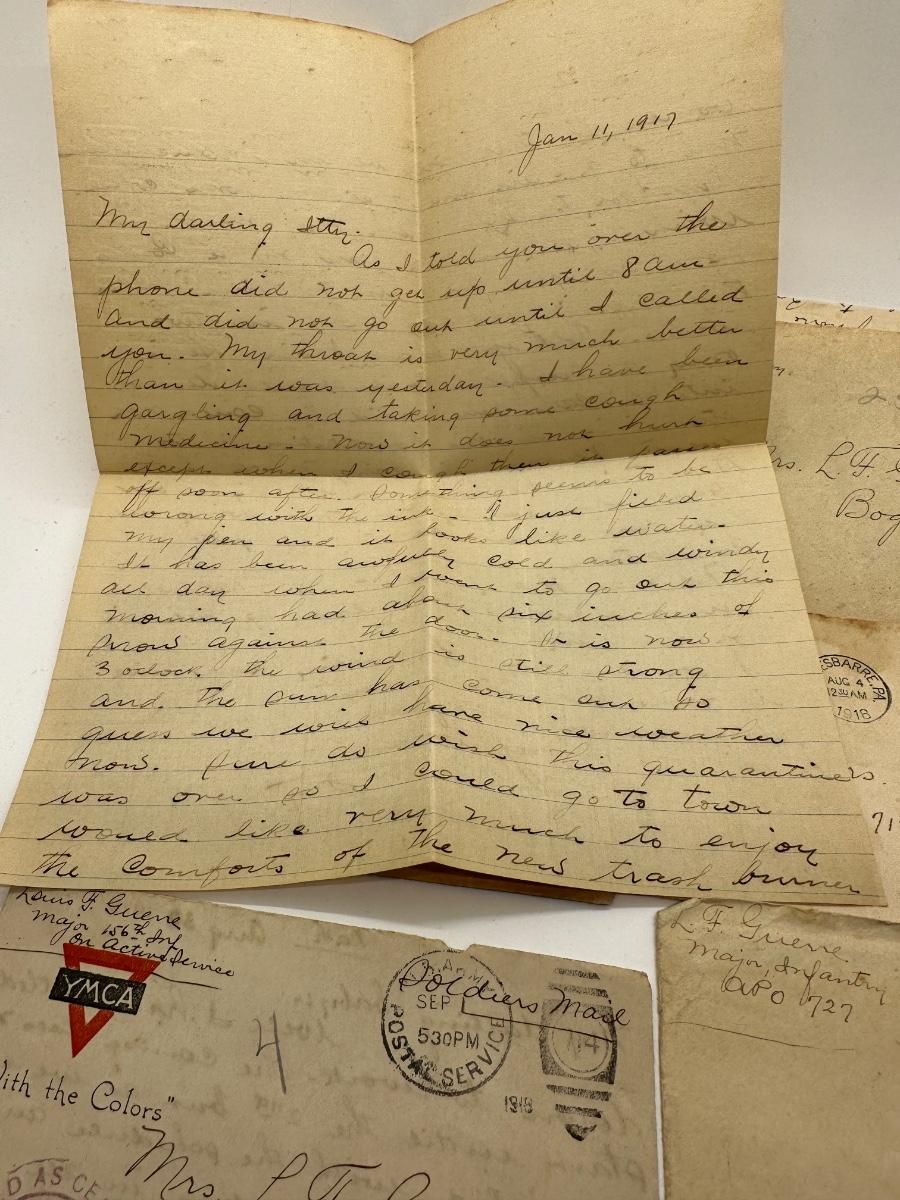 Jan 11, 1917
My darling Itty.
As I told you over the
phone did not get up until 8 am
and did not go out until I called
you. My throat is very much better
than it was yesterday. I have been
gargling and taking some cough
medicine. Now it does not hurt
except when I cough then it passes
off soon after. Something seems to be
wrong with the ink - I just filled
my pen and it looks like water.
It has been awfully cold and windy
all day when I went to go out this
morning had about six inches of
snow against the door. It is now
3 oclock the wind is still strong
and the sun has come out so
guess we will have nice weather
now. Sure do wish this quarantine
was over so I could go to town
would like very much to enjoy
the comforts of the new trash burner
Mrs. L. F. G
Bog
ESBARRE, PA.
AUG 4
12 30 AM
1918
71
Louis F. Guerre
Major 156th Inf
On Active Service
YMCA
Soldiers Mail
SEP
530PM
POSTAL SERVICE
1918
714
4
ith the Colors"
Mrs. L F. G
D AS CE
L. F. Guerre
Major, Infantry
APO 727